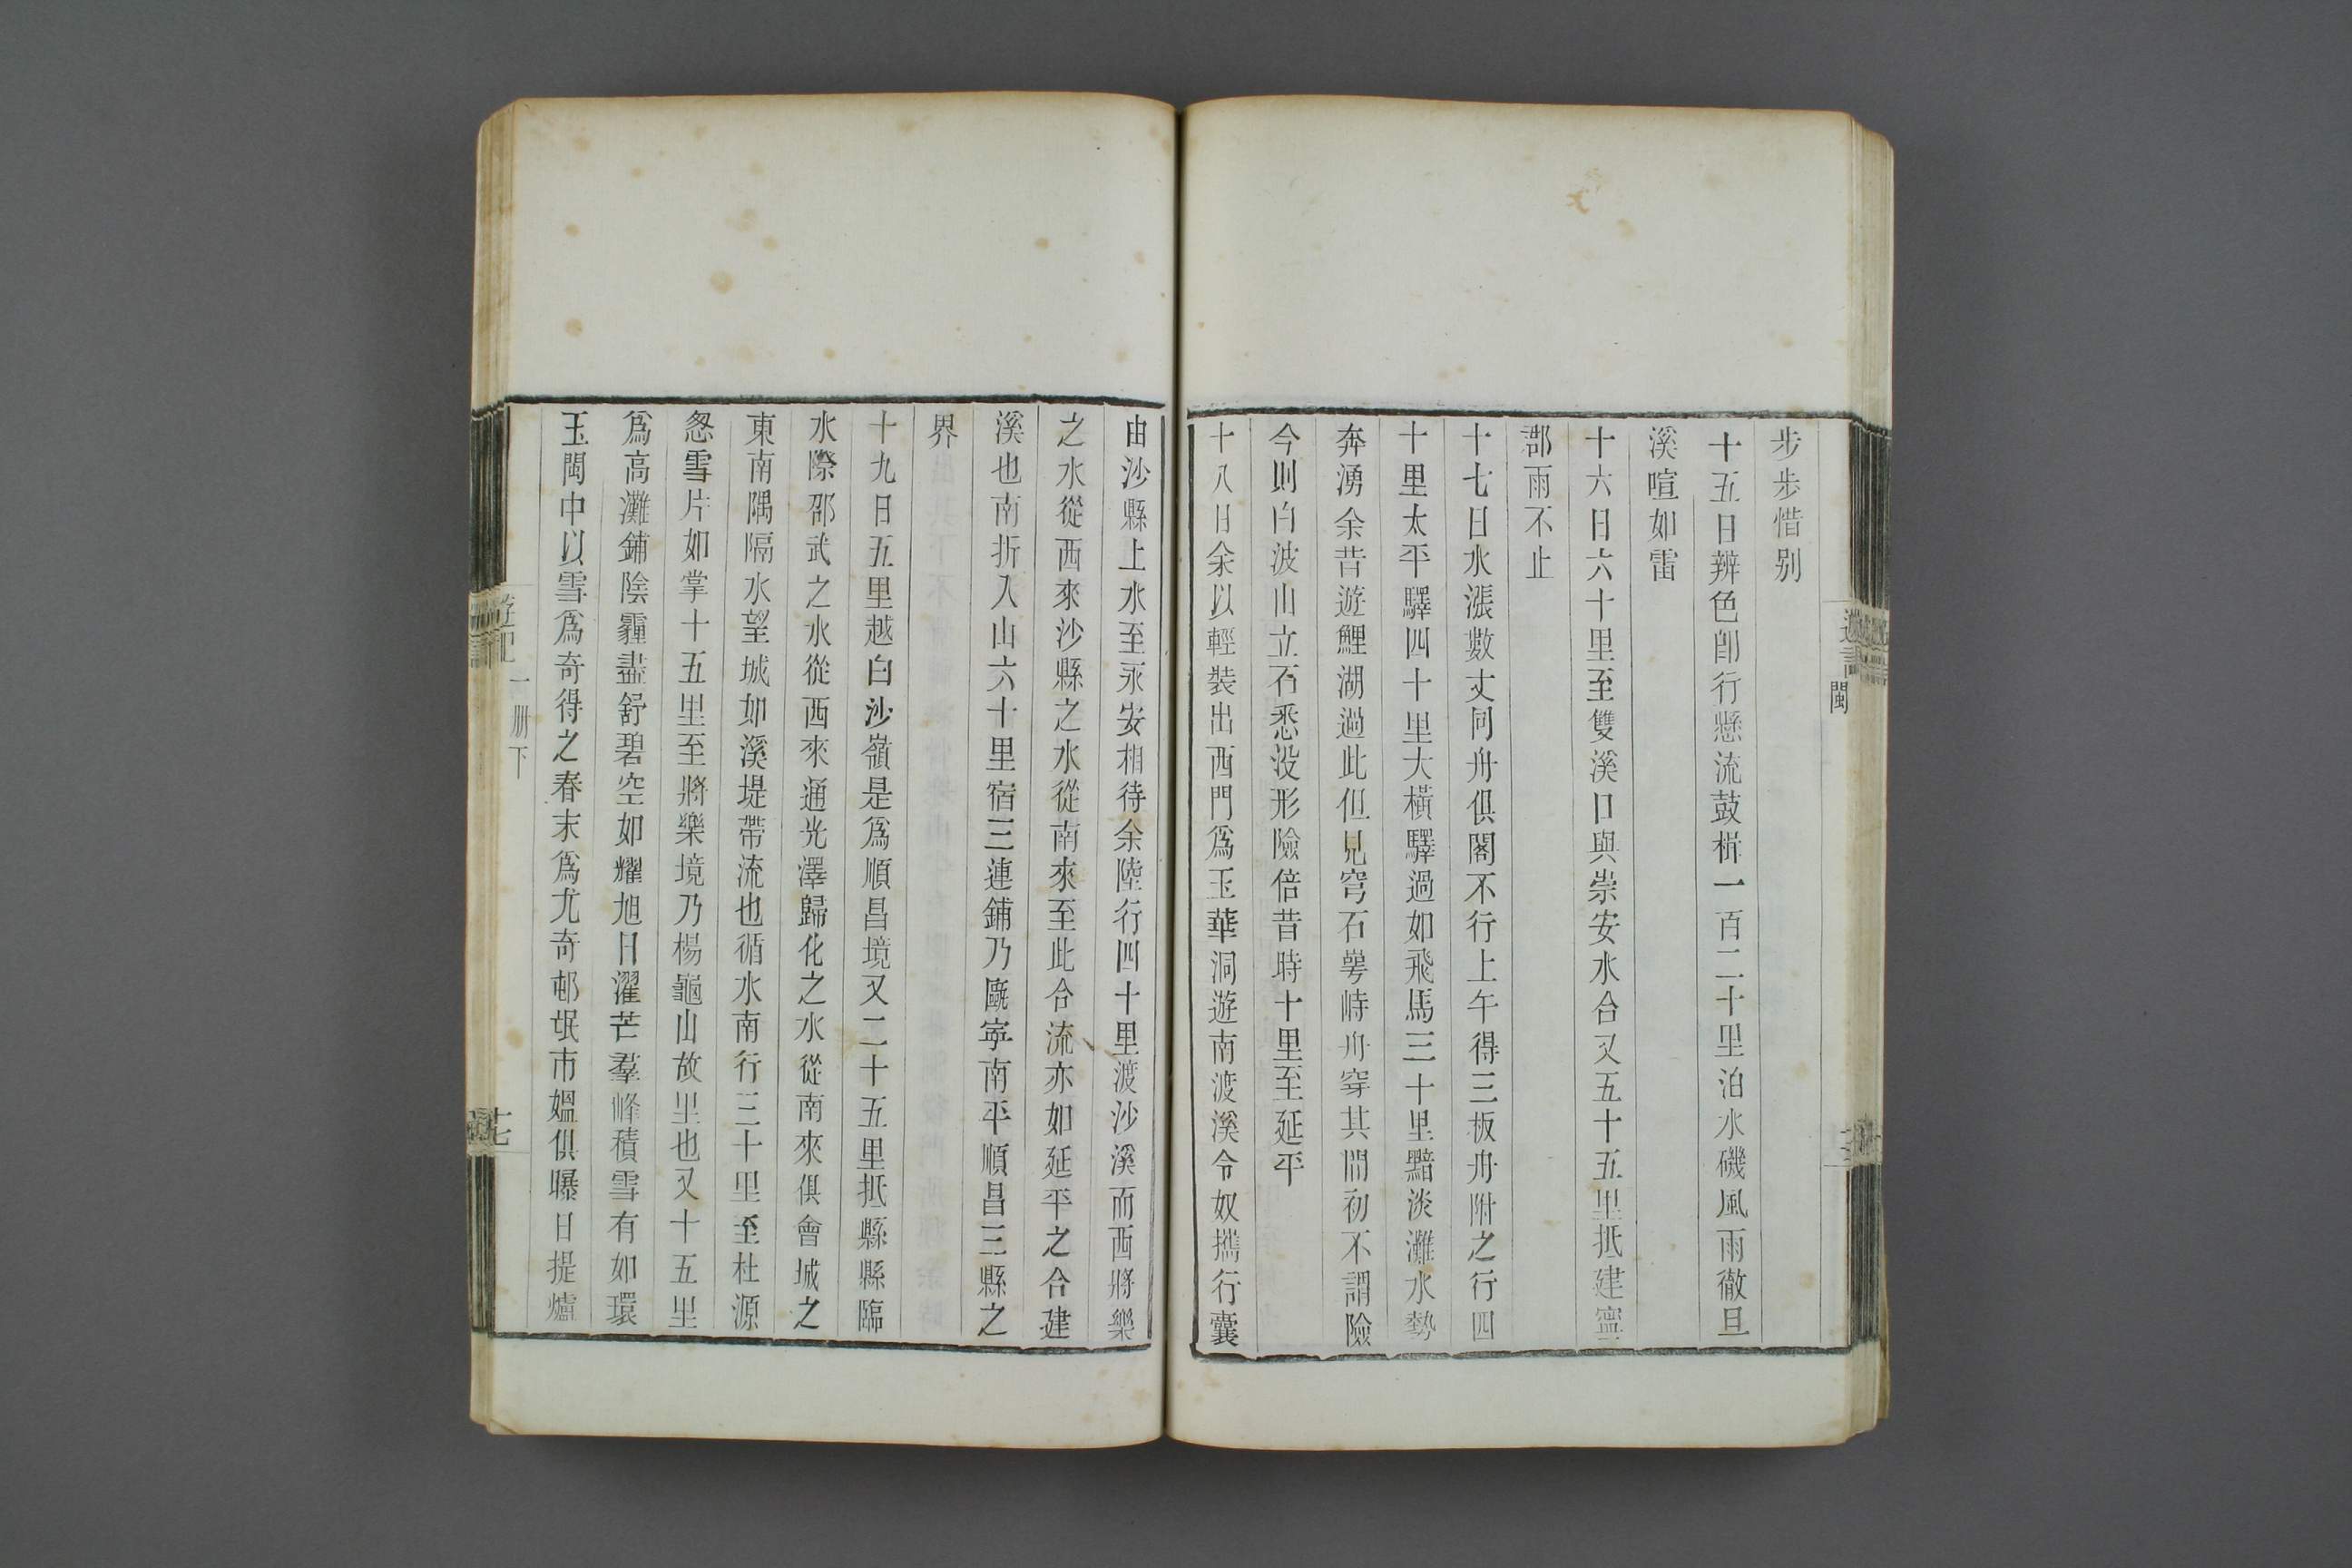 步步惜别
十五日辨色卽行懸流鼓楫一百二十里泊水磯風雨徹旦
溪喧如雷
十六日六十里至雙溪口與崇安水合又五十五里抵建寧
郡雨不止
十七日水漲數丈同舟俱閣不行上午得三板舟附之行四
十里太平驛四十里大橫驛過如飛馬三十里黯淡灘水勢
奔湧余昔遊鯉湖過此但見穹石崿峙舟穿其間初不謂險
今則白波山立石悉没形險倍昔時十里至延平
十八日余以輕裝出西門爲玉華洞遊南渡溪令奴攜行囊
由沙縣上水至永安相待余陸行四十里渡沙溪而西將樂
之水從西來沙縣之水從南來至此合流亦如延平之合建
溪也南折入山六十里宿三連鋪乃甌寧南平順昌三縣之
界
十九日五里越白沙嶺是爲順昌境又二十五里抵縣縣臨
水際邵武之水從西來通光澤歸化之水從南來俱會城之
東南隅隔水望城如溪堤帶流也循水南行三十里至杜源
忽雪片如掌十五里至將樂境乃楊龜山故里也又十五里
爲高灘鋪陰霾盡舒碧空如耀旭日濯芒羣峰積雪有如環
玉閩中以雪爲奇得之春末爲尤奇邨氓市媼俱曝日提爐
遊記
閩
遊記
一册下
十七